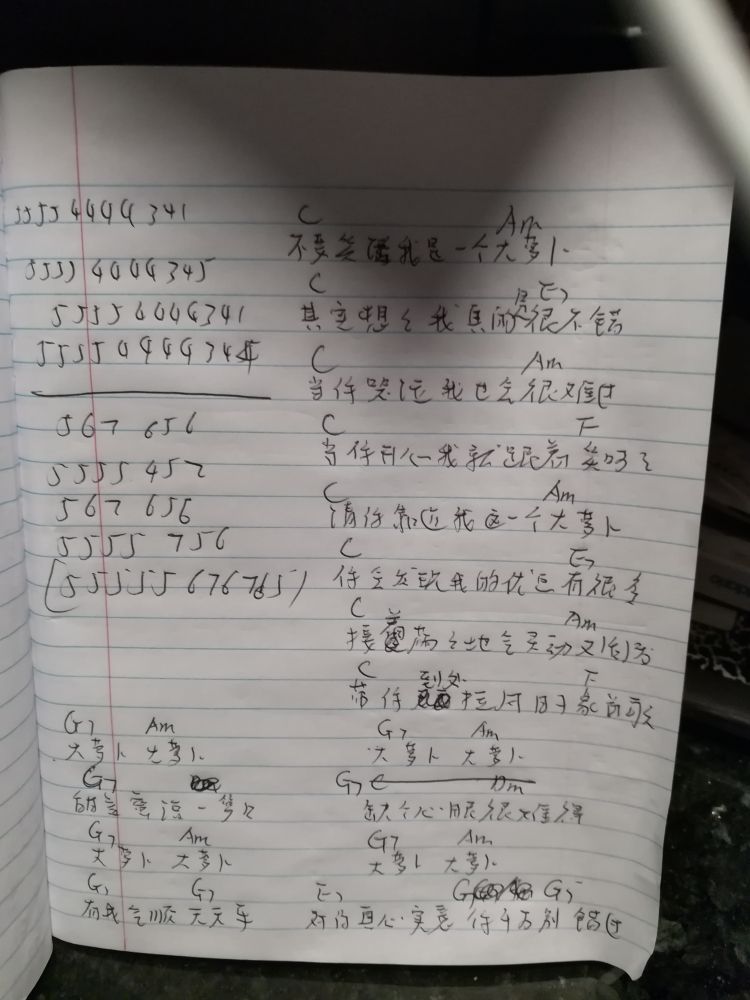 5555 444 341
C Am
不要笑话我是一个大萝卜
5555 4444 345
C E7
其实想想我真的很不错
5555 4444 341
5555 444434
C Am
当你哭泣我也会很难过
567 656
C F
当你开心我就跟着笑呵呵
5555 452
C Am
请你靠近我这一个大萝卜
567 656
5555 756
C E7
你会发现我的优点有很多
(55555 676765)
C Am
接 满满地气灵动又
C 到处 F
带你 拉风日子象首歌
G7 Am G7 Am
大萝卜 大萝卜 大萝卜 大萝卜
G7 G7
一箩 缺个心眼很难得
G7 Am G7 Am
大萝卜 大萝卜 大萝卜 大萝卜
G7 G7 E7 G7
有我气顺天天乐 对你真心实意 你千万别错过